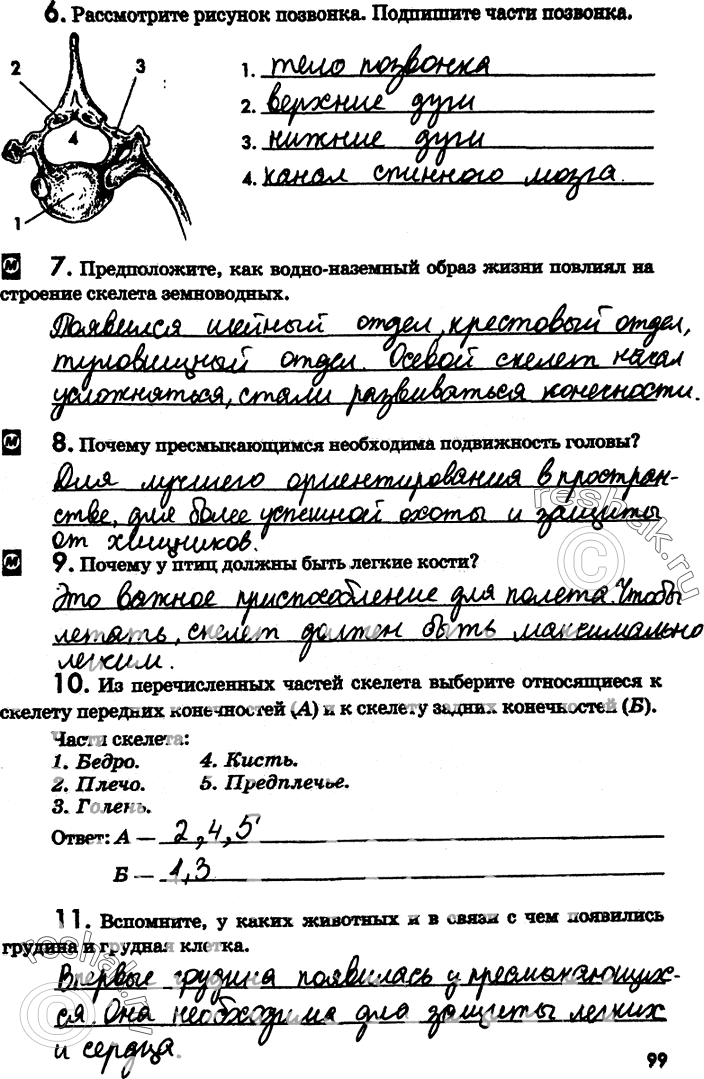 6. Рассмотрите рисунок позвонка. Подпишите части позвонка.
2 3
4
1
1. тело позвонка
2. верхние дуги
3. нижние дуги
4. канал спинного мозга.
М 7. Предположите, как водно-наземный образ жизни повлиял на
строение скелета земноводных.
Появился шейный отдел, крестовый отдел,
туловищный отдел. Осевой скелет начал
усложняться, стали развиваться конечности.
М 8. Почему пресмыкающимся необходима подвижность головы?
Для лучшего ориентирования в простран-
стве, для более успешной охоты и защиты
от хищников.
М 9. Почему у птиц должны быть легкие кости?
Это важное приспособление для полета. Чтобы
летать, скелет должен быть максимально
легким.
10. Из перечисленных частей скелета выберите относящиеся к
скелету передних конечностей (А) и к скелету задних конечностей (Б).
Части скелета:
1. Бедро. 4. Кисть.
2. Плечо. 5. Предплечье.
3. Голень.
Ответ: А — 2,4,5
Б — 1,3
11. Вспомните, у каких животных и в связи с чем появились
грудина и грудная клетка.
Впервые грудина появилась у пресмыкающих-
ся. Она необходима для защиты легких
и сердца.
99
reshak.ru
©
reshak.ru
©